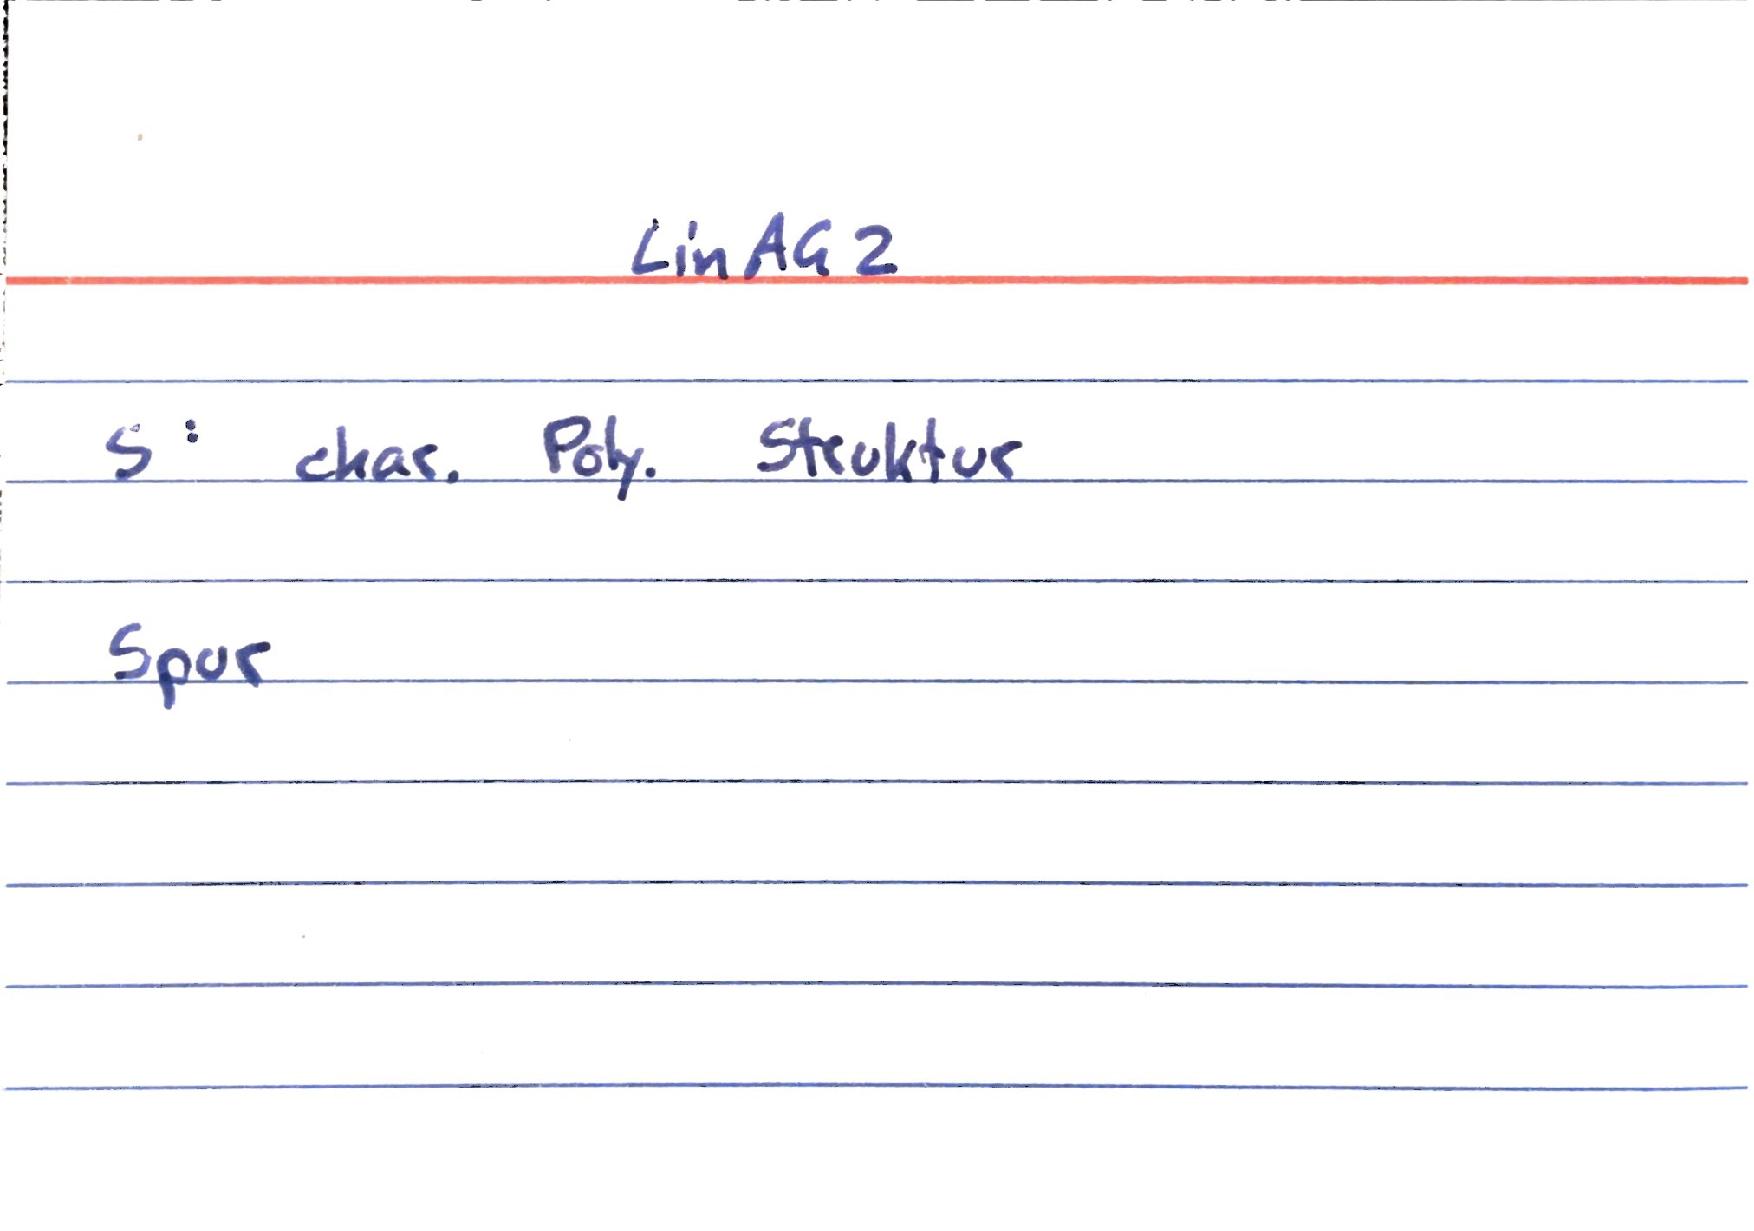 LinAG 2
S: char. Poly. Struktur
Spur